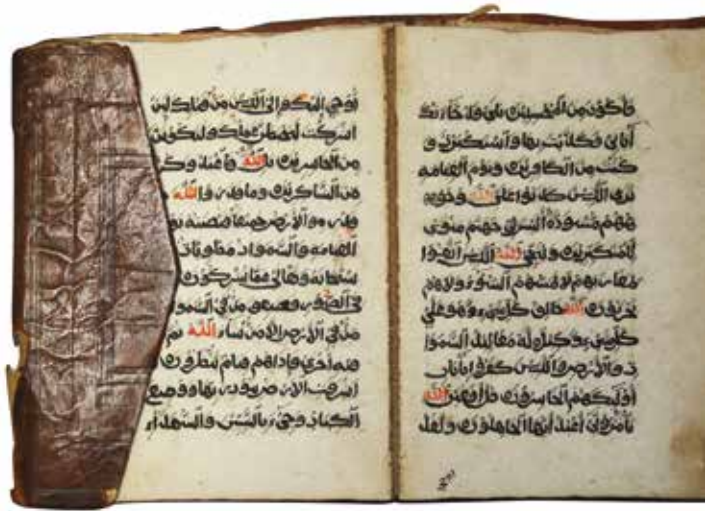 فأكون من المحسنين بلى قد جاءتك
آياتي فكذبت بها واستكبرت و
كنت من الكافرين ويوم القيامة
ترى الذين كذبوا على الله وجو
ههم مسودة أليس في جهنم مثوى
للمتكبرين وينجي الله الذين اتقوا
بمفازتهم لا يمسهم السوء ولا هم
يحزنون الله خالق كل شيء وهو على
كل شيء وكيل له مقاليد السموا
ت والأرض والذين كفروا بآيات
أولئك هم الخاسرون قل أفغير الله
تأمروني أعبد أيها الجاهلون ولقد
أوحي إليك وإلى الذين من قبلك لئن
أشركت ليحبطن عملك ولتكونن
من الخاسرين بل الله فاعبد وكن
من الشاكرين وما قدروا الله
قدره والأرض جميعا قبضته يو
القيامة والسموات مطويات
سبحانه وتعالى عما يشركون
في الصور فصعق من في السموا
من في الأرض إلا من شاء الله ثم
فيه أخرى فإذا هم قيام ينظرون
أشرقت الأرض بنور ربها ووضع
الكتاب وجيء بالنبيين والشهداء